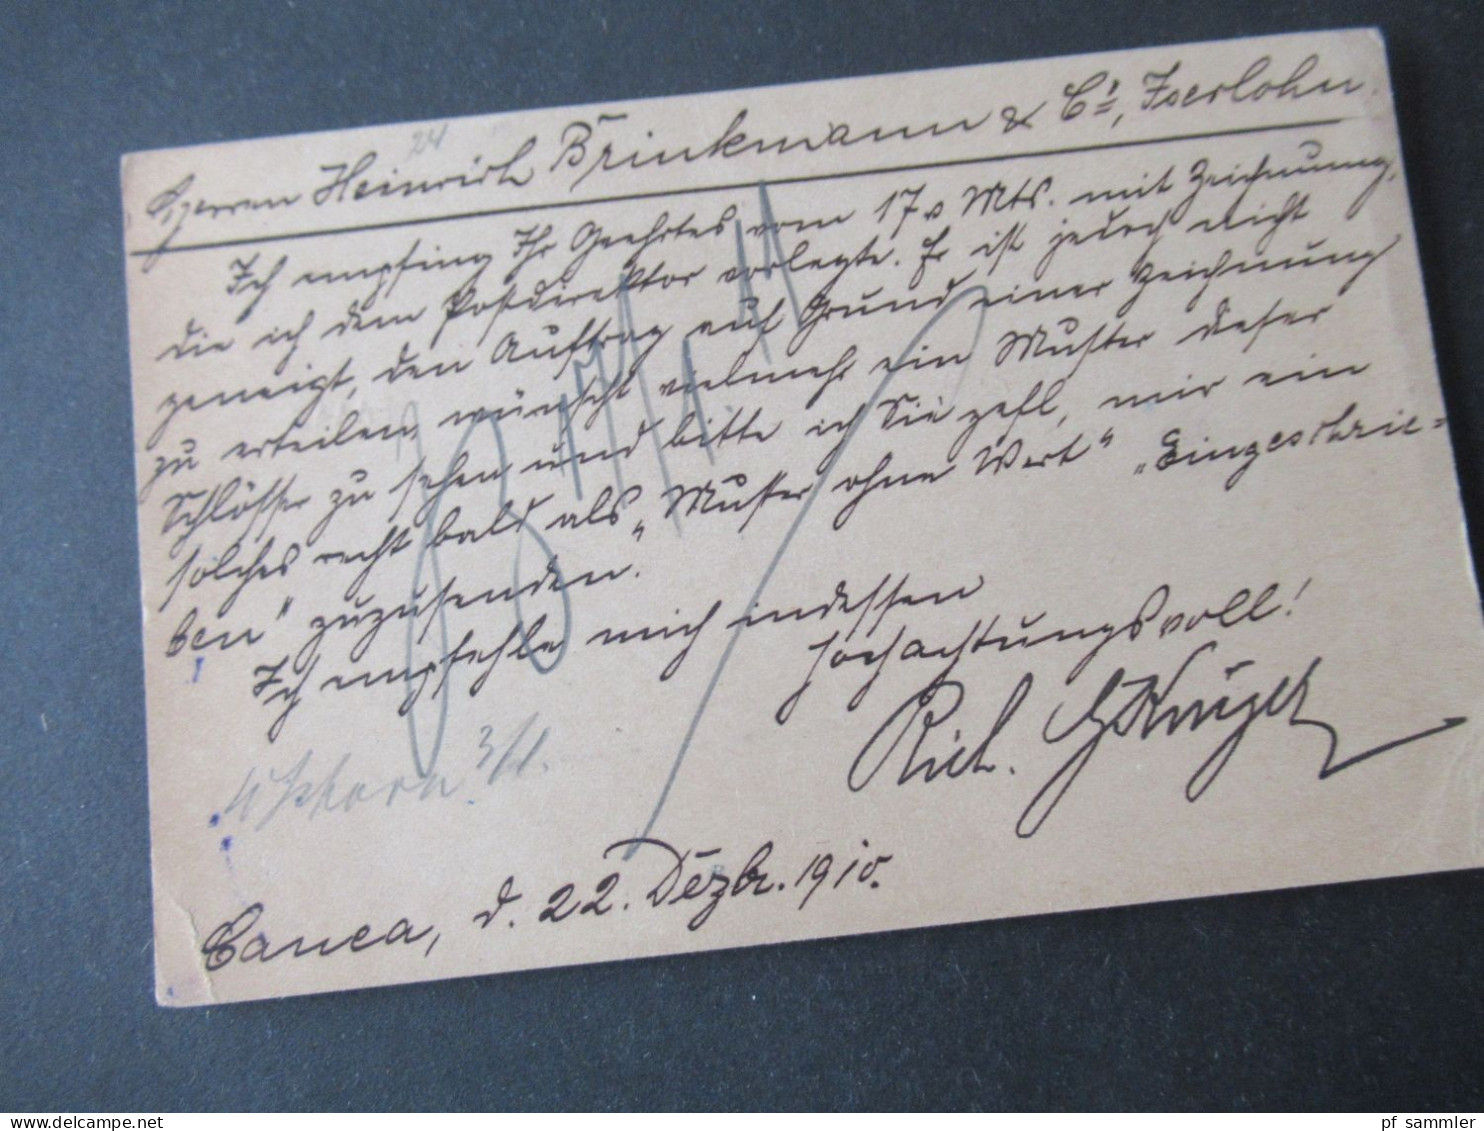 24
Herren Heinrich Brinkmann & Cie, Iserlohn.
Ich empfing Ihr Geehrtes vom 17. Mts. mit Zeichnung,
die ich dem Postdirektor vorlegte. Er ist jedoch nicht
geneigt, den Auftrag auf Grund einer Zeichnung
zu erteilen, wünscht vielmehr ein Muster dieser
Schlösser zu sehen und bitte ich Sie gefl., mir ein
solches recht bald als „Muster ohne Wert“ „Eingeschrie=
ben“ zuzusenden.
Ich empfehle mich indessen
hochachtungsvoll!
Rich. Krüger
3/1.
Canea, d. 22. Dezbr. 1910.
pf sammler